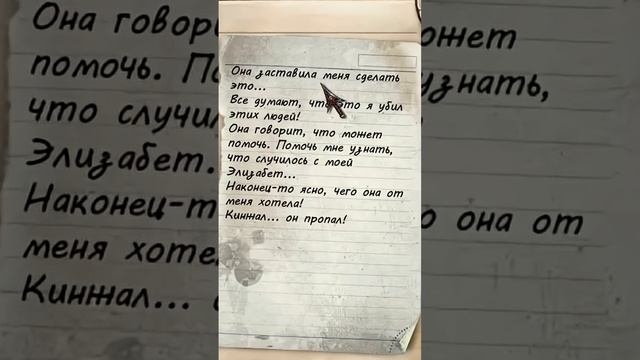 Она заставила меня сделать
это...
Все думают, что это я убил
этих людей!
Она говорит, что может
помочь. Помочь мне узнать,
что случилось с моей
Элизабет...
Наконец-то ясно, чего она от
меня хотела!
Кинжал... он пропал!